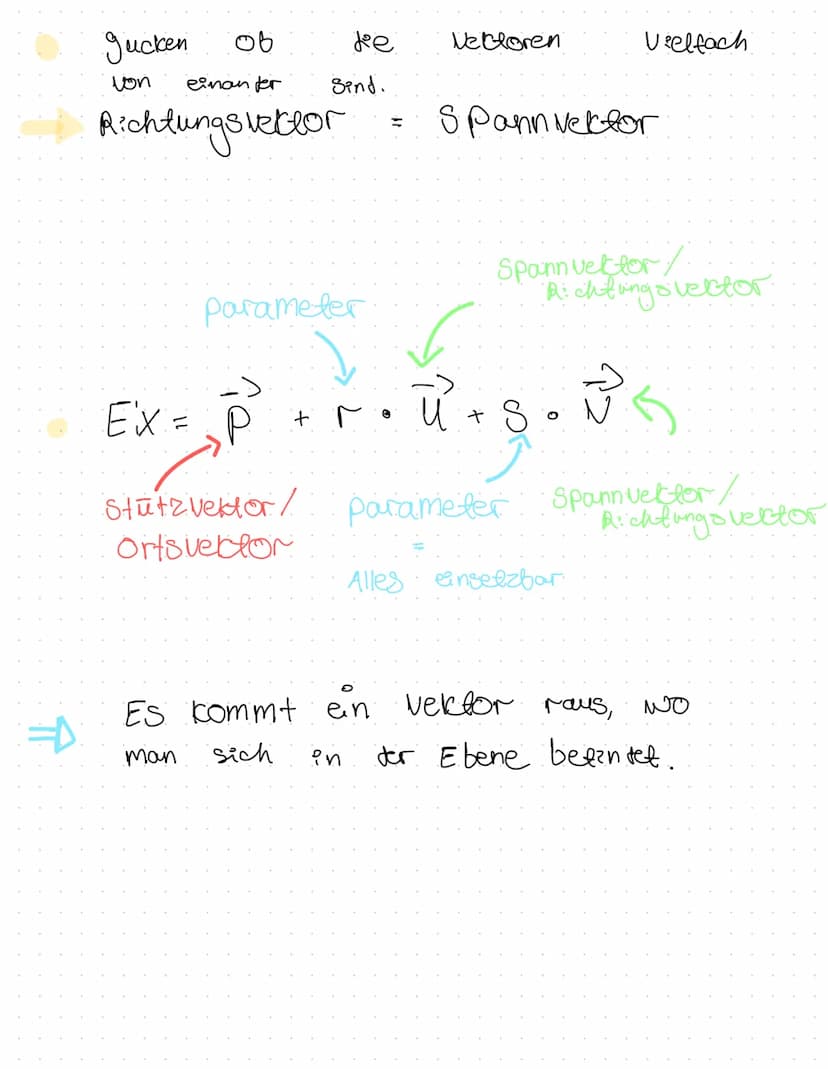 gucken ob die Vektoren Vielfach
von einander sind.
Richtungsvektor = Spannvektor
Spannvektor/
Richtungsvektor
parameter
E:x = p⃗ + r • u⃗ + s • v⃗
Stützvektor/
Ortsvektor
parameter
=
Alles einsetzbar
Spannvektor/
Richtungsvektor
⇒ Es kommt ein Vektor raus, wo
man sich in der Ebene befindet.